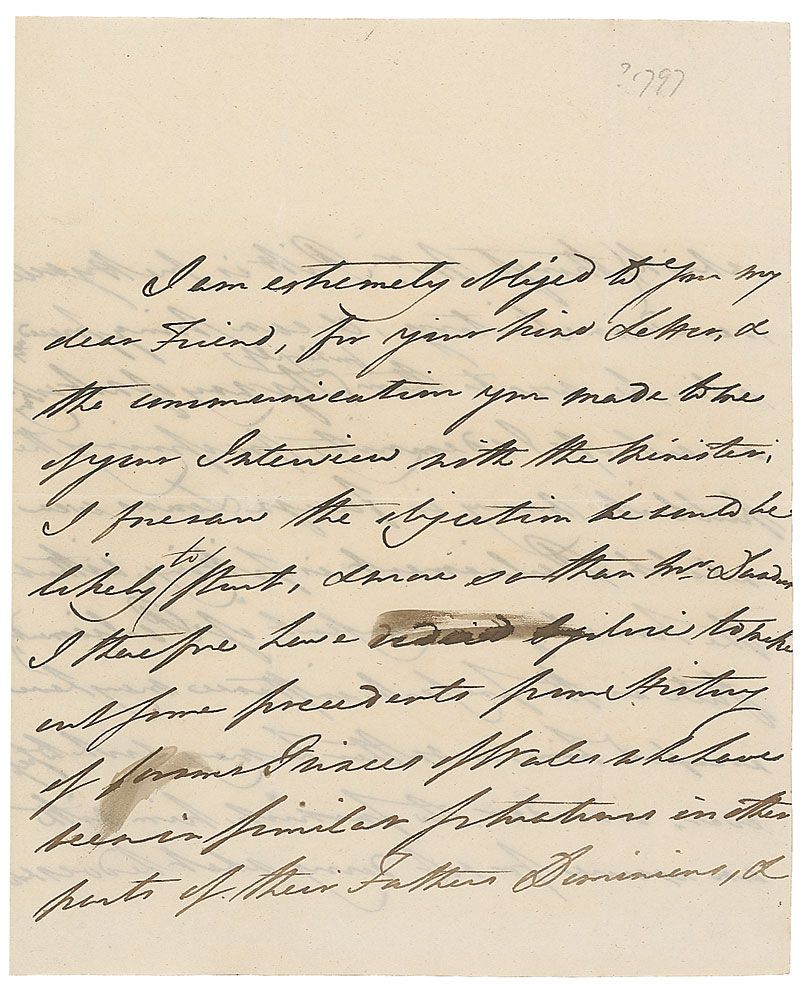 ? 1797
I am extremely obliged to you my
dear Friend, for your kind Letter, &
the communication you made to me
of your Interview with the Minister;
I foresaw the objection he would be
likely to start, & more so than Mr. Dundas
I therefore have desired Ogilvie to make
out some precedents from History
of former Princes of Wales who have
been in similar situations in other
parts of their Fathers Dominions, &